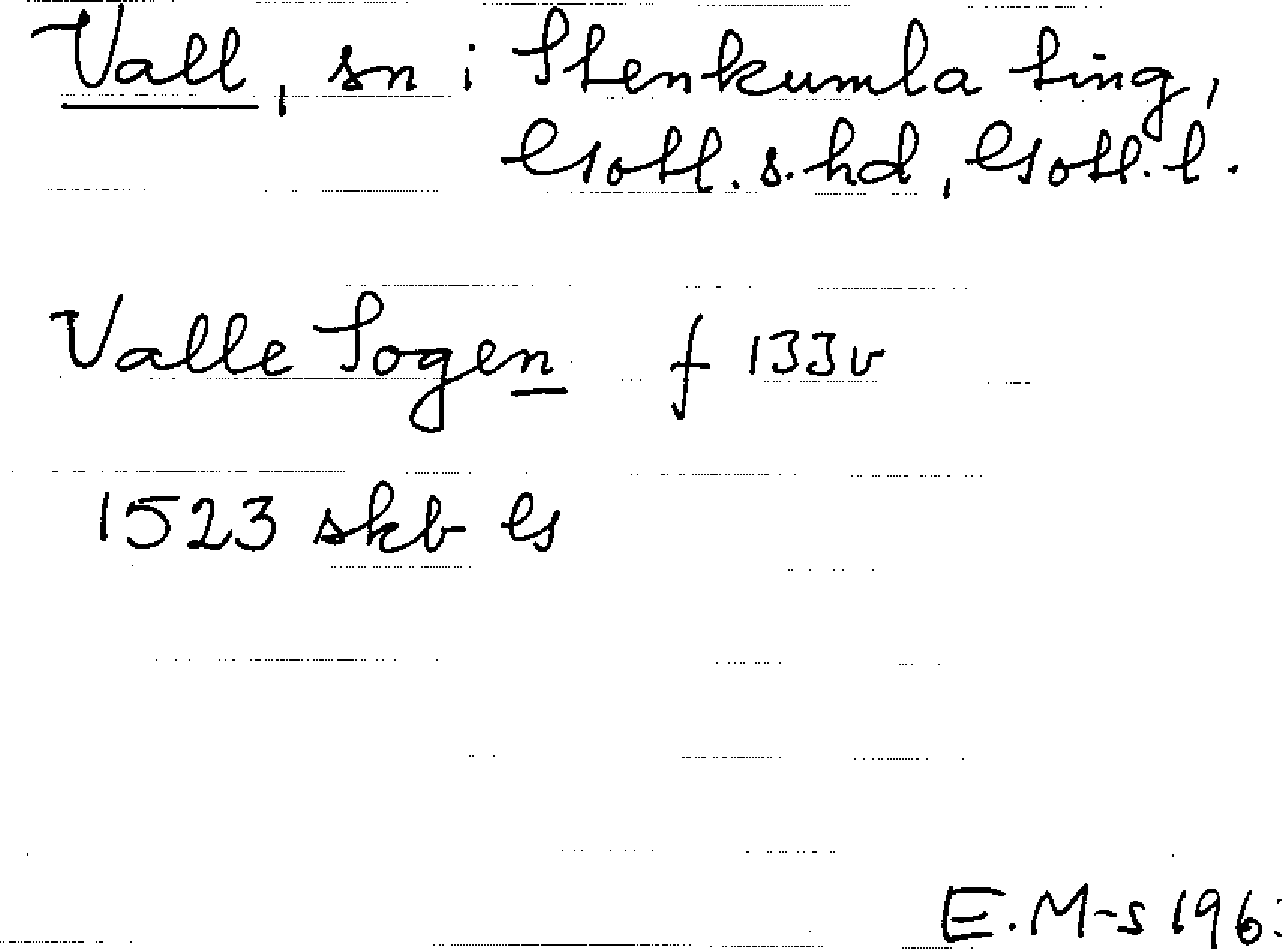 Vall, sn i Stenkumla ting,
Gotl. s. hd, Gotl. l.
Valle Sogen f 133v
1523 skb G
E. M-s 196